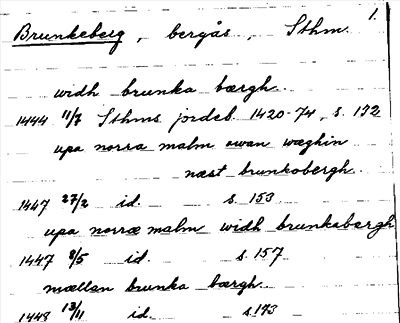 1.
Brunkeberg, bergås, Sthm.
widh brunka bærgh.
1444 11/7 Sthms jordeb. 1420-74, s. 132
upa norra malm owan wæghin
næst brunkobergh.
1447 27/2 id. s. 153
upa norræ malm widh brunkabærgh
1447 8/5 id. s. 157
mællan brunka bærgh.
1448 13/11 id. s. 173